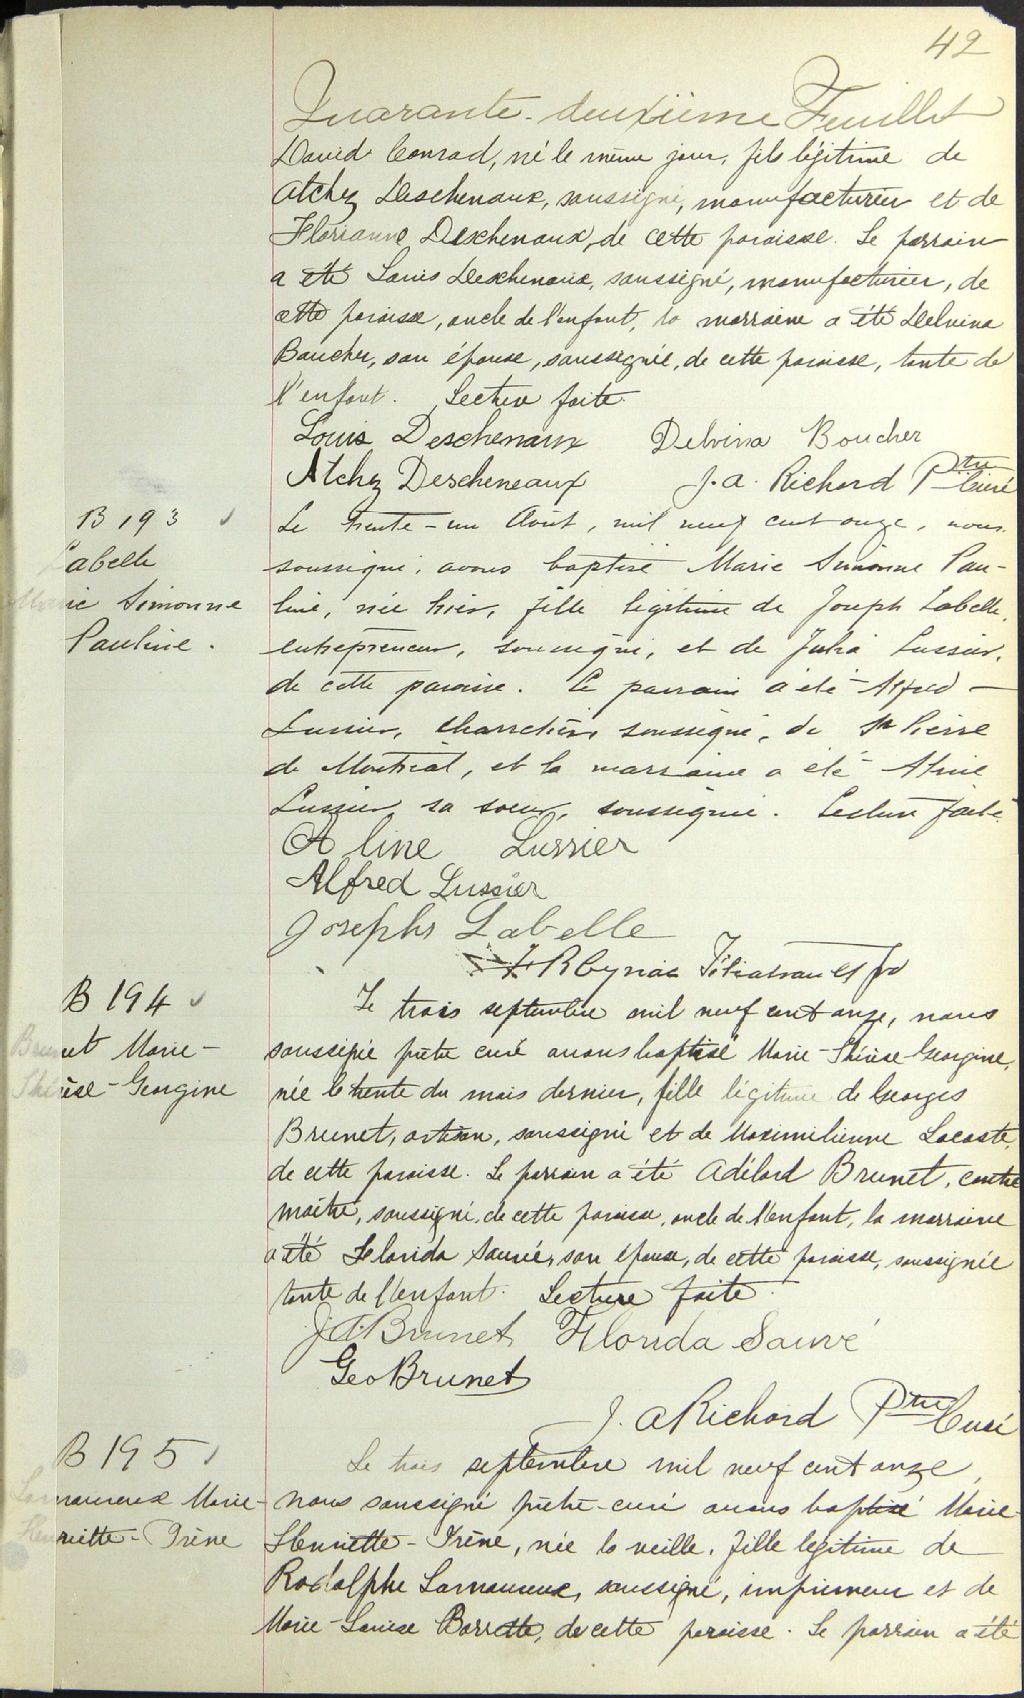 42
Quarante-deuxième Feuillet
David Conrad, né le même jour, fils légitime de
Atchez Deschenaux, soussigné, manufacturier et de
Florianne Deschenaux, de cette paroisse. Le parrain
a été Louis Deschenaux, soussigné, manufacturier, de
cette paroisse, oncle de l'enfant, la marraine a été Delvina
Boucher, son épouse, soussignée, de cette paroisse, tante de
l'enfant. Lecture faite.
Louis Deschenaux Delvina Boucher
Atchez Descheneaux J. A. Richard Ptre Curé
B 193
Labelle
Marie Simonne
Pauline.
Le trente-un Août, mil neuf cent onze, nous
soussigné, avons baptisé Marie Simonne Pau-
line, née hier, fille légitime de Joseph Labelle,
entrepreneur, soussigné, et de Julia Lussier,
de cette paroisse. Le parrain a été Alfred
Lussier, charretier, soussigné, de St Pierre
de Montréal, et la marraine a été Aline
Lussier sa soeur, soussignée. Lecture faite.
Aline Lussier
Alfred Lussier
Joseph Labelle
B 194
Brunet Marie-
Thérèse-Georgine
Le trois septembre mil neuf cent onze, nous
soussigné prêtre curé avons baptisé Marie-Thérèse-Georgine,
née le trente du mois dernier, fille légitime de Georges
Brunet, artisan, soussigné et de Maximilienne Lacoste,
de cette paroisse. Le parrain a été Adélard Brunet, contre
maître, soussigné, de cette paroisse, oncle de l'enfant, la marraine
a été Florida Sauvé, son épouse, de cette paroisse, soussignée
tante de l'enfant. Lecture faite.
J. A. Brunet Florida Sauvé
Geo Brunet
J. A Richard Ptre Curé
B 195
Lamoureux Marie-
Henriette-Irène
Le trois septembre mil neuf cent onze,
nous soussigné prêtre-curé avons baptisé Marie-
Henriette-Irène, née la veille, fille légitime de
Rodolphe Lamoureux, soussigné, imprimeur et de
Marie-Louise Barrette, de cette paroisse. Le parrain a été